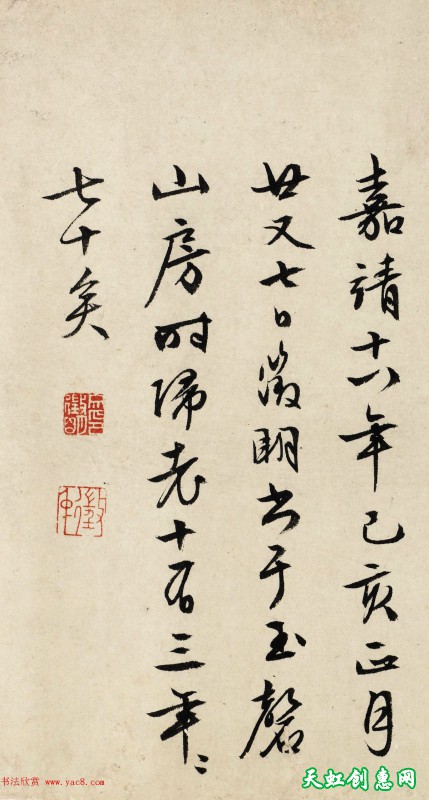 嘉靖十八年己亥正月
廿又七日徵明书于玉磬
山房时归老十有三年〻
七十矣
书法欣赏 www.yac8.com
天虹创惠网